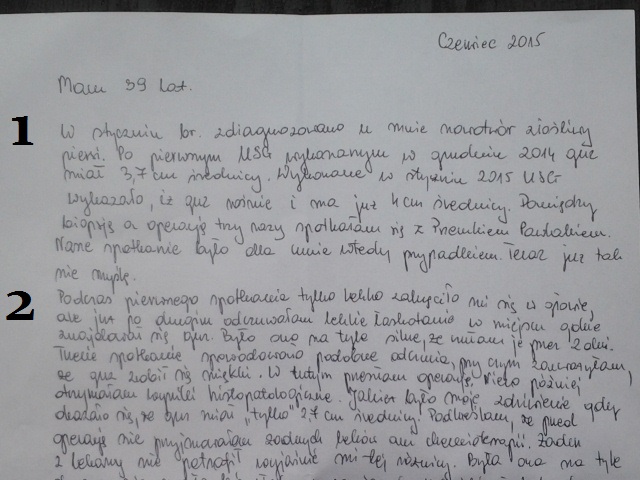 Czerwiec 2015
Mam 39 lat.
1
W styczniu br. zdiagnozowano u mnie nowotwór złośliwy
piersi. Po pierwszym USG wykonanym w grudniu 2014 guz
miał 3,7 cm średnicy. Wykonane w styczniu 2015 USG
wykazało, iż guz rośnie i ma już 4 cm średnicy. Pomiędzy
biopsją a operacją trzy razy spotkałam się z Pawlakiem.
Nasze spotkanie było dla mnie wtedy przypadkiem. Teraz już tak
nie myślę.
2
Podczas pierwszego spotkania tylko lekko zakręciło mi się w głowie,
ale już po drugim odczuwałam lekkie łaskotanie w miejscu gdzie
znajdował się guz. Było ono na tyle silne, że miałam je przez 2 dni.
Trzecie spotkanie spowodowało podobne odczucia, przy czym zauważyłam,
że guz zrobił się miękki. W lutym przeszłam operację. Nieco później
otrzymałam wyniki histopatologiczne. Jakież było moje zdziwienie gdy
okazało się, że guz miał "tylko" 2,7 cm średnicy. Podkreślam, że przed
operacją nie przyjmowałam żadnych leków ani chemioterapii. Żaden
z lekarzy nie potrafił wyjaśnić mi tej różnicy. Była ona na tyle